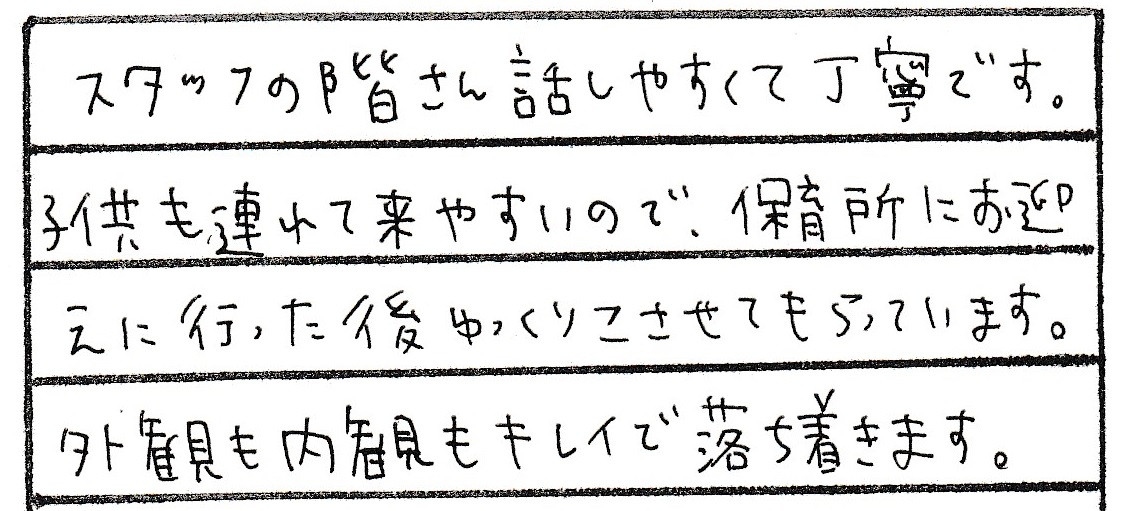 スタッフの皆さん話しやすくて丁寧です。
子供も連れて来やすいので、保育所にお迎
えに行った後ゆっくりこさせてもらっています。
外観も内観もキレイで落ち着きます。